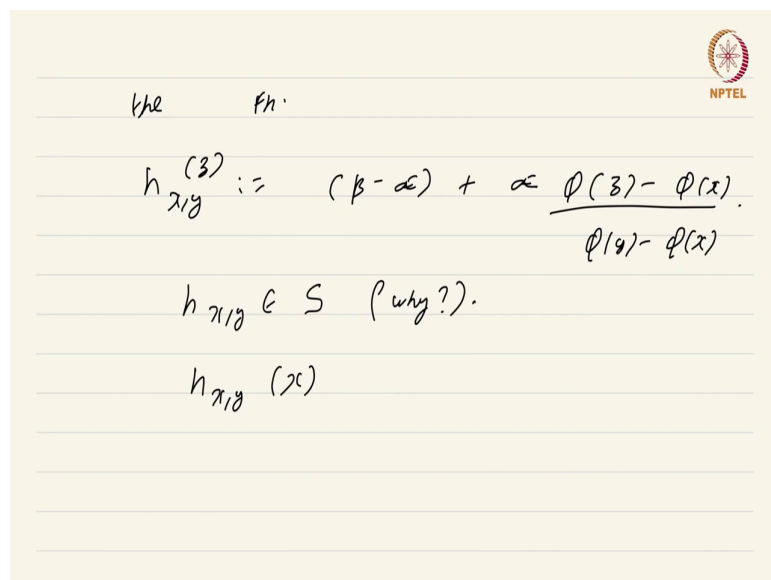 NPTEL
the Fn.
h_{x,y}(z) := (β - α) + α \frac{φ(z) - φ(x)}{φ(y) - φ(x)}.
h_{x,y} ∈ S (why?).
h_{x,y} (x)